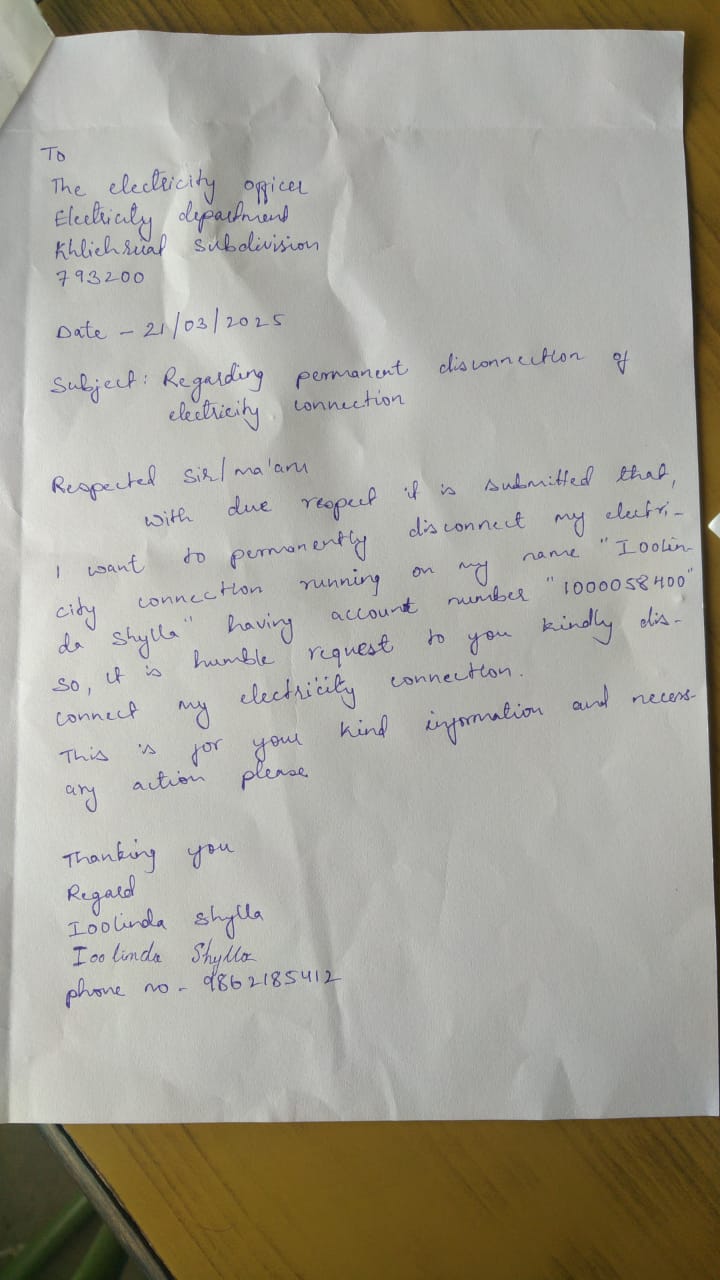 To
The electricity officer
Electricity department
Khliehriat Subdivision
793200
Date - 21/03/2025
Subject: Regarding permanent disconnection of
electricity connection
Respected Sir/ma'am
With due respect it is submitted that,
I want to permanently disconnect my electri-
city connection running on my name "Ioolin-
da Shylla" having account number "1000058400"
So, it is humble request to you kindly dis-
connect my electricity connection.
This is for your kind information and necess-
ary action please
Thanking you
Regard
Ioolinda Shylla
Ioolinda Shylla
phone no - 9862185412